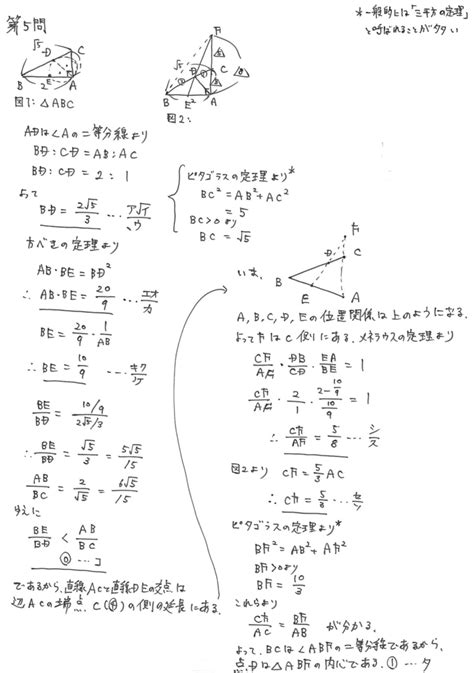 *一般的には「三平方の定理」
と呼ばれることが多い
第5問
図1:△ABC
図2:
ADは∠Aの二等分線より
BD:CD=AB:AC
BD:CD=2:1
よって
BD=2√5/3 … ア√イ/ウ
ピタゴラスの定理より*
BC²=AB²+AC²
=5
BC>0より
BC=√5
方べきの定理より
AB・BE=BD²
∴AB・BE=20/9 … エオ/カ
BE=20/9・1/AB
∴BE=10/9 … キク/ケ
BE/BD=(10/9)/(2√5/3)
∴BE/BD=√5/3=5√5/15
AB/BC=2/√5=6√5/15
ゆえに
BE/BD<AB/BC
⓪…コ
であるから、直線ACと直線DEの交点は
辺ACの端点C(④)の側の延長にある。
いま、
A,B,C,D,Eの位置関係は上のようになる。
よってFはC側にある。メネラウスの定理より
CF/AF・DB/CD・EA/BE=1
CF/AF・2/1・(2-10/9)/(10/9)=1
∴CF/AF=5/8 … シ/ス
図2より CF=5/3AC
∴CF=5/3 … セ/ソ
ピタゴラスの定理より*
BF²=AB²+AF²
BF>0より
BF=10/3
これらより
CF/AC=BF/AB が分かる。
よって、BCは∠ABFの二等分線であるから、
点Dは△ABFの内心である。①…タ